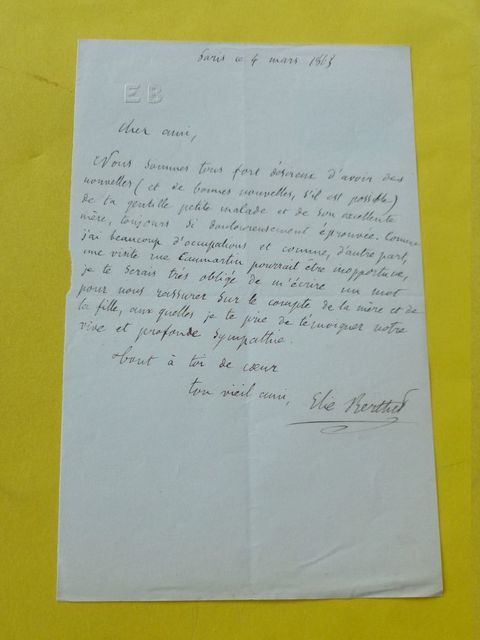 Paris ce 4 mars 1868
EB
Cher ami,
Nous sommes tous fort désireux d'avoir des
nouvelles (et de bonnes nouvelles, s'il est possible)
de ta gentille petite malade et de son excellente
mère, toujours si douloureusement éprouvée. Comme
j'ai beaucoup d'occupations et comme, d'autre part,
une visite rue Caumartin pourrait être inopportune,
je te serais très obligé de m'écrire un mot
pour nous rassurer sur le compte de la mère et de
la fille, auxquelles je te prie de témoigner notre
vive et profonde sympathie.
tout à toi de cœur
ton vieil ami,
Elie Berthet